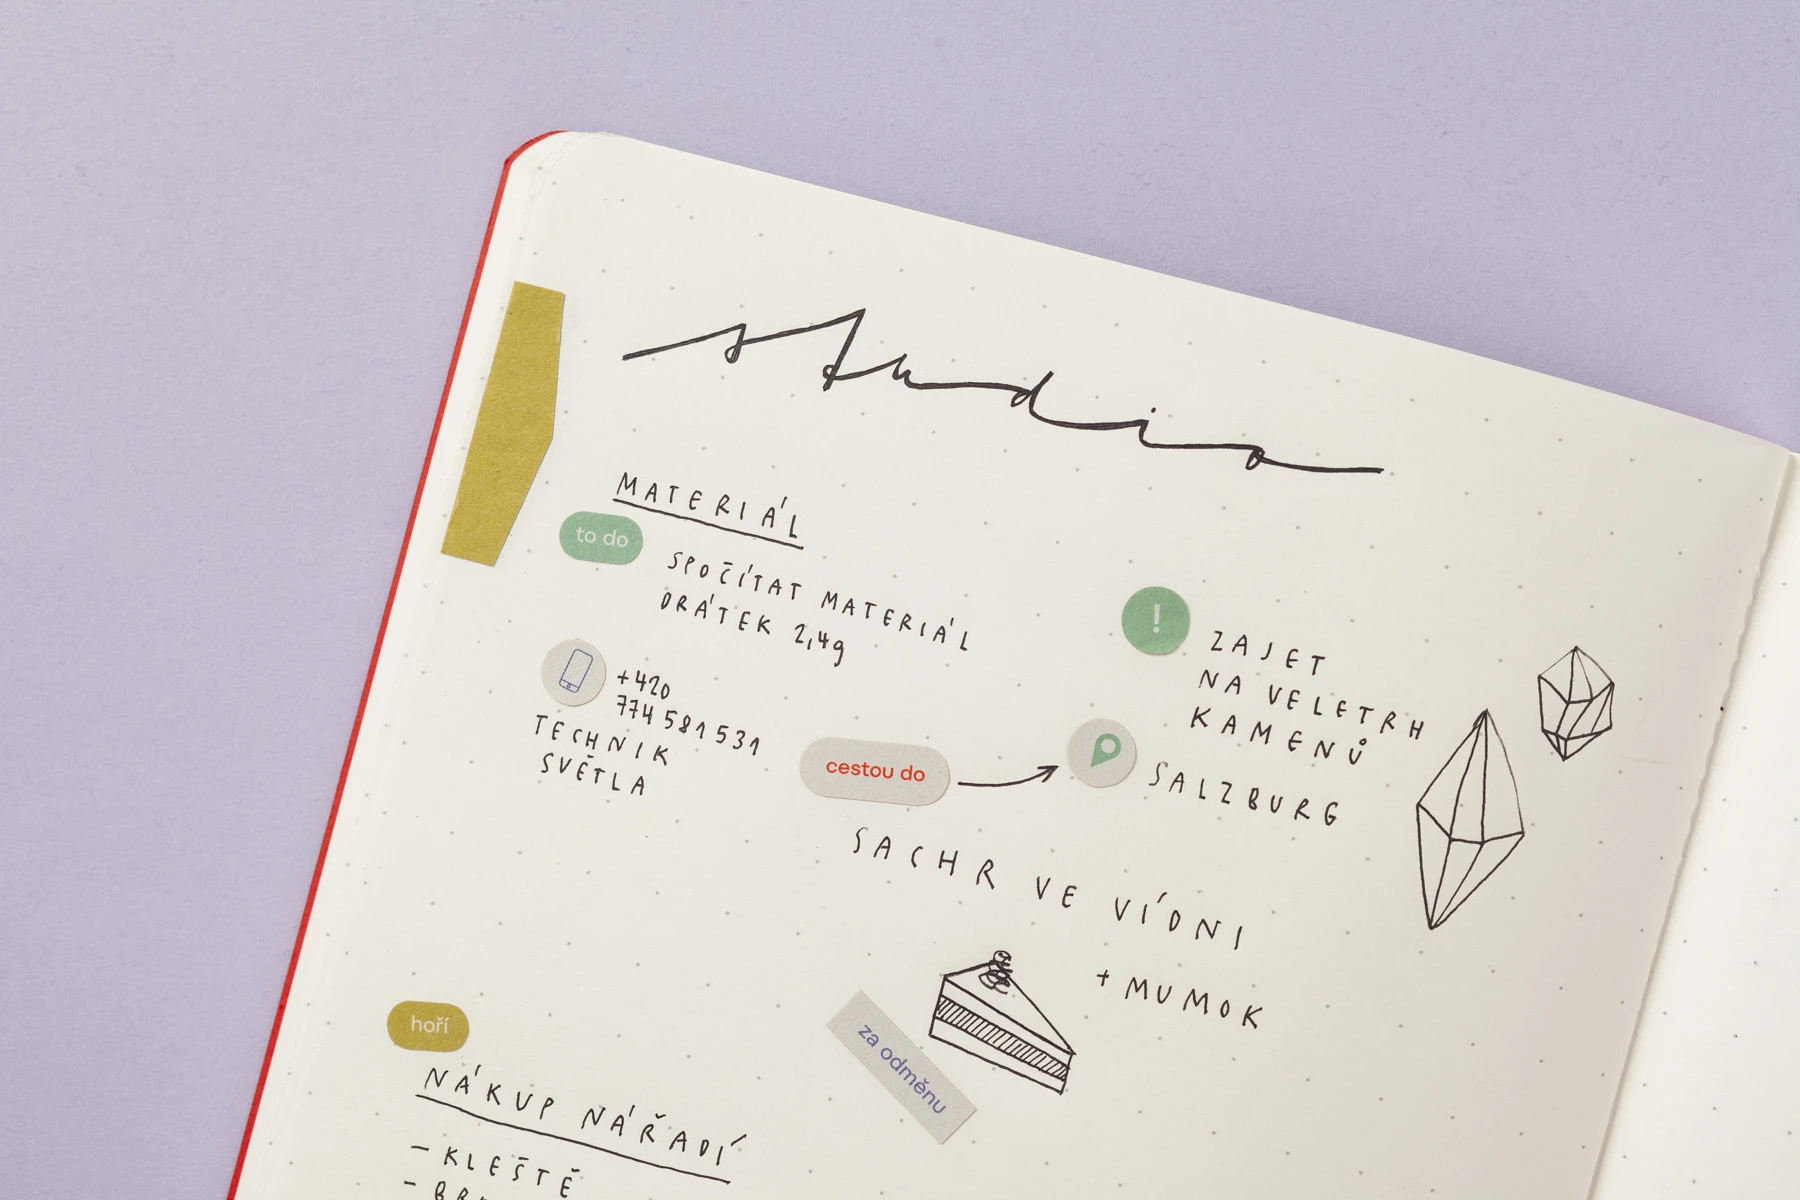 studio
MATERIÁL
to do
SPOČÍTAT MATERIÁL
DRÁTEK 2,49
+420
774 581 531
TECHNIK
SVĚTLA
!
ZAJET
NA VELETRH
KAMENŮ
cestou do
SALZBURG
SACHR VE VÍDNI
+ MUMOK
za odměnu
hoří
NÁKUP NÁŘADÍ
- KLEŠTĚ
-